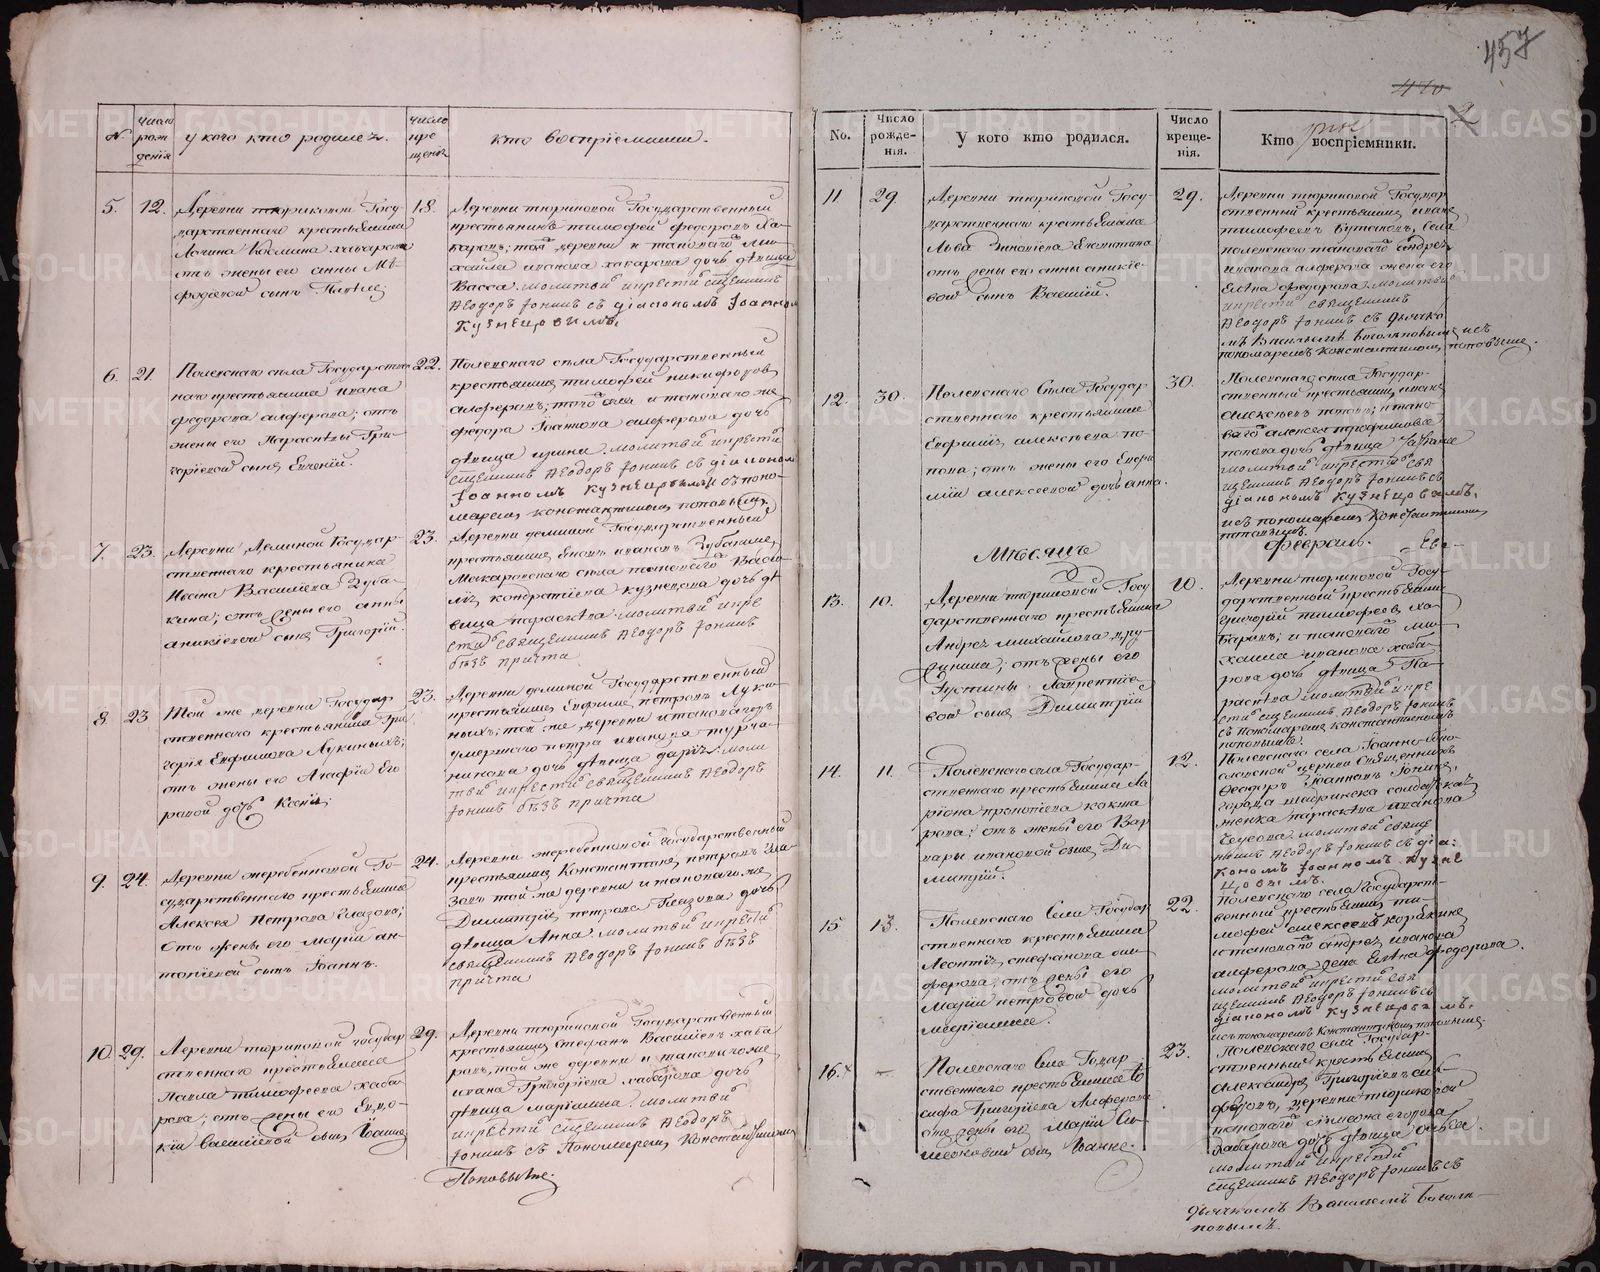 457
2
№
Число рож дения
у кого кто родился.
число кре щения
кто воспріемники.
5.
12.
Деревни тюриковой Госу-
дарственнаго крестьянина
Логина Козмина хабарова
отъ жены его анны Ме-
фодіевой сынъ Павелъ;
18.
Деревни тюриковой Государственный
крестьянинъ тимофей федоровъ Ха-
баровъ; той деревни и таковаго ми-
хайла иванова хабарова дочь девица
Васса. молитвилъ и крестилъ священникъ
Ѳеодоръ Іонинъ съ діакономъ Іоанномъ
Кузнецовымъ.
6.
21.
Полевскаго села Государствен
наго крестьянина ивана
федорова алферова; отъ
жены его Параскевы Гри-
горіевой сынъ Евгеній.
22.
Полевскаго села Государственный
крестьянинъ тимофей никифоровъ
алферовъ; того села и таковаго же
федора Іоаннова алферова дочь
девица ирина. молитвилъ и крестилъ
священникъ Ѳеодоръ Іонинъ съ діакономъ
Іоанномъ Кузнецовымъ и съ поно-
маремъ константиномъ поповымъ.
7.
23.
Деревни Деминой Государ-
ственнаго крестьянина
Ивана Василіева Зуба-
кина; отъ жены его анны
аникіевой сынъ Григорій.
23.
Деревни деминой Государственный
крестьянинъ иванъ Зубакинъ,
Макаровскаго села таковаго Васи-
лія кондратіева кузнецова дочь де
вица параскева. молитвилъ и кре
стилъ священникъ Ѳеодоръ Іонинъ
безъ причта
8.
23
Той же деревни Государ
ственнаго крестьянина Гри
горія Евфимова Лукиныхъ;
отъ жены его Агафіи Его
ровой дочь Ксенія;
23.
Деревни деминой Государственный
крестьянинъ Евфимъ петровъ Луки-
ныхъ; той же деревни и таковагожъ
умершаго петра иванова турча-
нинова дочь девица дарія. моли
твилъ и крестилъ священникъ Ѳеодоръ
Іонинъ безъ причта
9.
24.
Деревни жеребенковой Го-
сударственнаго крестьянина
Алексея Петрова Глазова;
Отъ жены его Маріи ан-
тоніевой сынъ Іоаннъ.
24.
Деревни жеребенковой Государственный
крестьянинъ Константинъ петровъ Гла-
зовъ той же деревни и таковаго же
Димитрія петрова Глазова дочь
девица Анна. молитвилъ и крестилъ
священникъ Ѳеодоръ Іонинъ безъ
причта
10.
29.
Деревни тюриковой государ
ственнаго крестьянина
Павла тимофеева хаба-
рова; отъ жены его Евдо-
кіи Василіевой сынъ Іоаннъ
29.
Деревни тюриковой Государственный
крестьянинъ стефанъ Василіевъ хаба
ровъ, той же деревни и таковагоже
ивана Григоріева хабарова дочь
девица маріамна. молитвилъ
и крестилъ священникъ Ѳеодоръ
Іонинъ съ Пономаремъ Константиномъ
Поповымъ.
No.
Число рожде- нія.
У кого кто родился.
Число креще- нія.
Кто воспріемники.
11.
29
Деревни тюриковой Госу-
дарственнаго крестьянина
отъ жены его анны аникіе-
вой сынъ Василій.
29.
Деревни тюриковой Государ
ственный крестьянинъ иванъ
полевскаго таковаго андрея
иванова алферова жена его
Елена федорова. молитвилъ
и крестилъ священникъ
Ѳеодоръ Іонинъ съ дьячко
мъ Васильемъ Боголюбовымъ и съ
пономаремъ Константиномъ поповымъ.
12.
30.
Полевскаго Села Государ-
ственнаго крестьянина
Евфимія алексеева по-
пова; отъ жены его Евфи-
міи алексеевой дочь анна.
30.
Полевскаго села Государ-
ственный крестьянинъ иванъ
Алексеевъ поповъ; и тако-
ваго алексея трофимова
попова дочь девица
молитвилъ и крестилъ свя
щенникъ Ѳеодоръ Іонинъ съ
діакономъ Кузнецовымъ,
и съ пономаремъ Константиномъ
поповымъ.
Месяцъ
Февраль.
13.
10.
Деревни тюриковой Госу
дарственнаго крестьянина
Андрея михайлова
отъ жены его
Іустины Лаврентіе-
вой сынъ Димитрій
10.
Деревни тюриковой Госу-
дарственный крестьянинъ
Григорій тимофеевъ ха-
баровъ; и таковаго ми-
хаила иванова хаба-
рова дочь девица Па-
раскева молитвилъ и кре
стилъ священникъ Ѳеодоръ Іонинъ
съ пономаремъ константиномъ
поповымъ.
14.
11.
Полевскаго села Государ-
ственнаго крестьянина Ла
ріона прокопіева
отъ жены его Вар
вары ивановой сынъ Ди-
митрій.
12.
Полевскаго села Іоанно-Бого-
словской церкви священникъ
Ѳеодоръ Іоанновъ Іонинъ,
города шадринска солдатская
женка параскева иванова
молитвилъ свяще
нникъ Ѳеодоръ Іонинъ съ діа-
кономъ Іоанномъ Кузне
цовымъ.
15
13.
Полевскаго Села Государ
ственнаго крестьянина
Леонтія стефанова ал-
ферова, отъ жены его
Маріи петровой дочь
маріамна.
22.
Полевскаго села Государст-
венный крестьянинъ ти-
мофей алексеевъ корякинъ
и таковаго андрея иванова
алферова жена Елена федорова.
молитвилъ и крестилъ свя
щенникъ Ѳеодоръ Іонинъ съ
діакономъ Кузнецовымъ,
и съ пономаремъ Константиномъ поповымъ.
16.
-
Полевскаго Села Государ
ственнаго крестьянина Іо
сифа Григоріева Алферова
отъ жены его Маріи
сынъ Іоаннъ.
23.
Полевскаго села Государ-
ственный крестьянинъ
Александръ Григоріевъ ал-
феровъ, деревни тюриковой
таковаго егорова
хабарова дочь девица
молитвилъ и крестилъ
священникъ Ѳеодоръ Іонинъ съ
дьячкомъ Васильемъ Боголю-
бовымъ.
METRIKI.GASO-URAL.RU